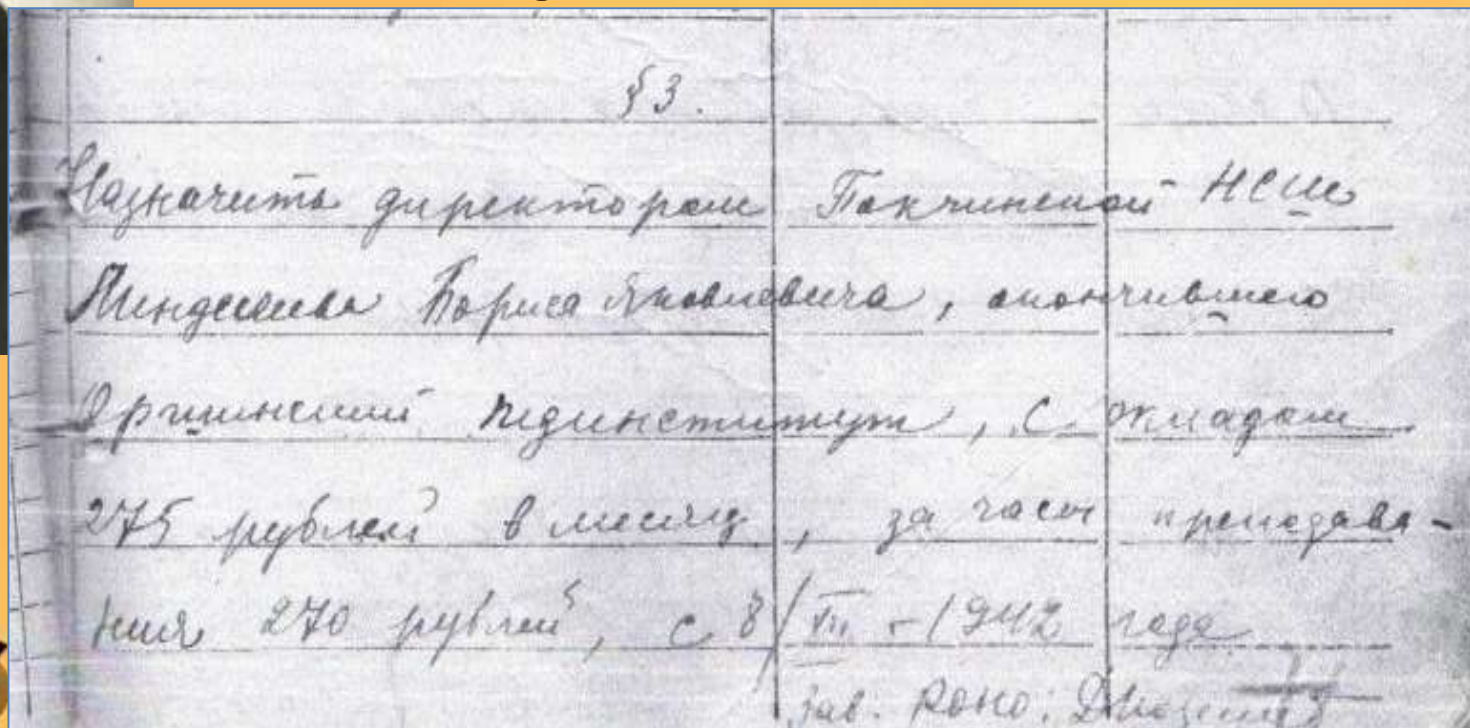 §3.
Назначить директором Покчинской НСШ
Бориса Яковлевича, окончившего
Оршинский пединститут, с окладом
275 рублей в месяц, за часы преподава-
ния 270 рублей, с 8/VII - 1942 года
Зав. Роно: